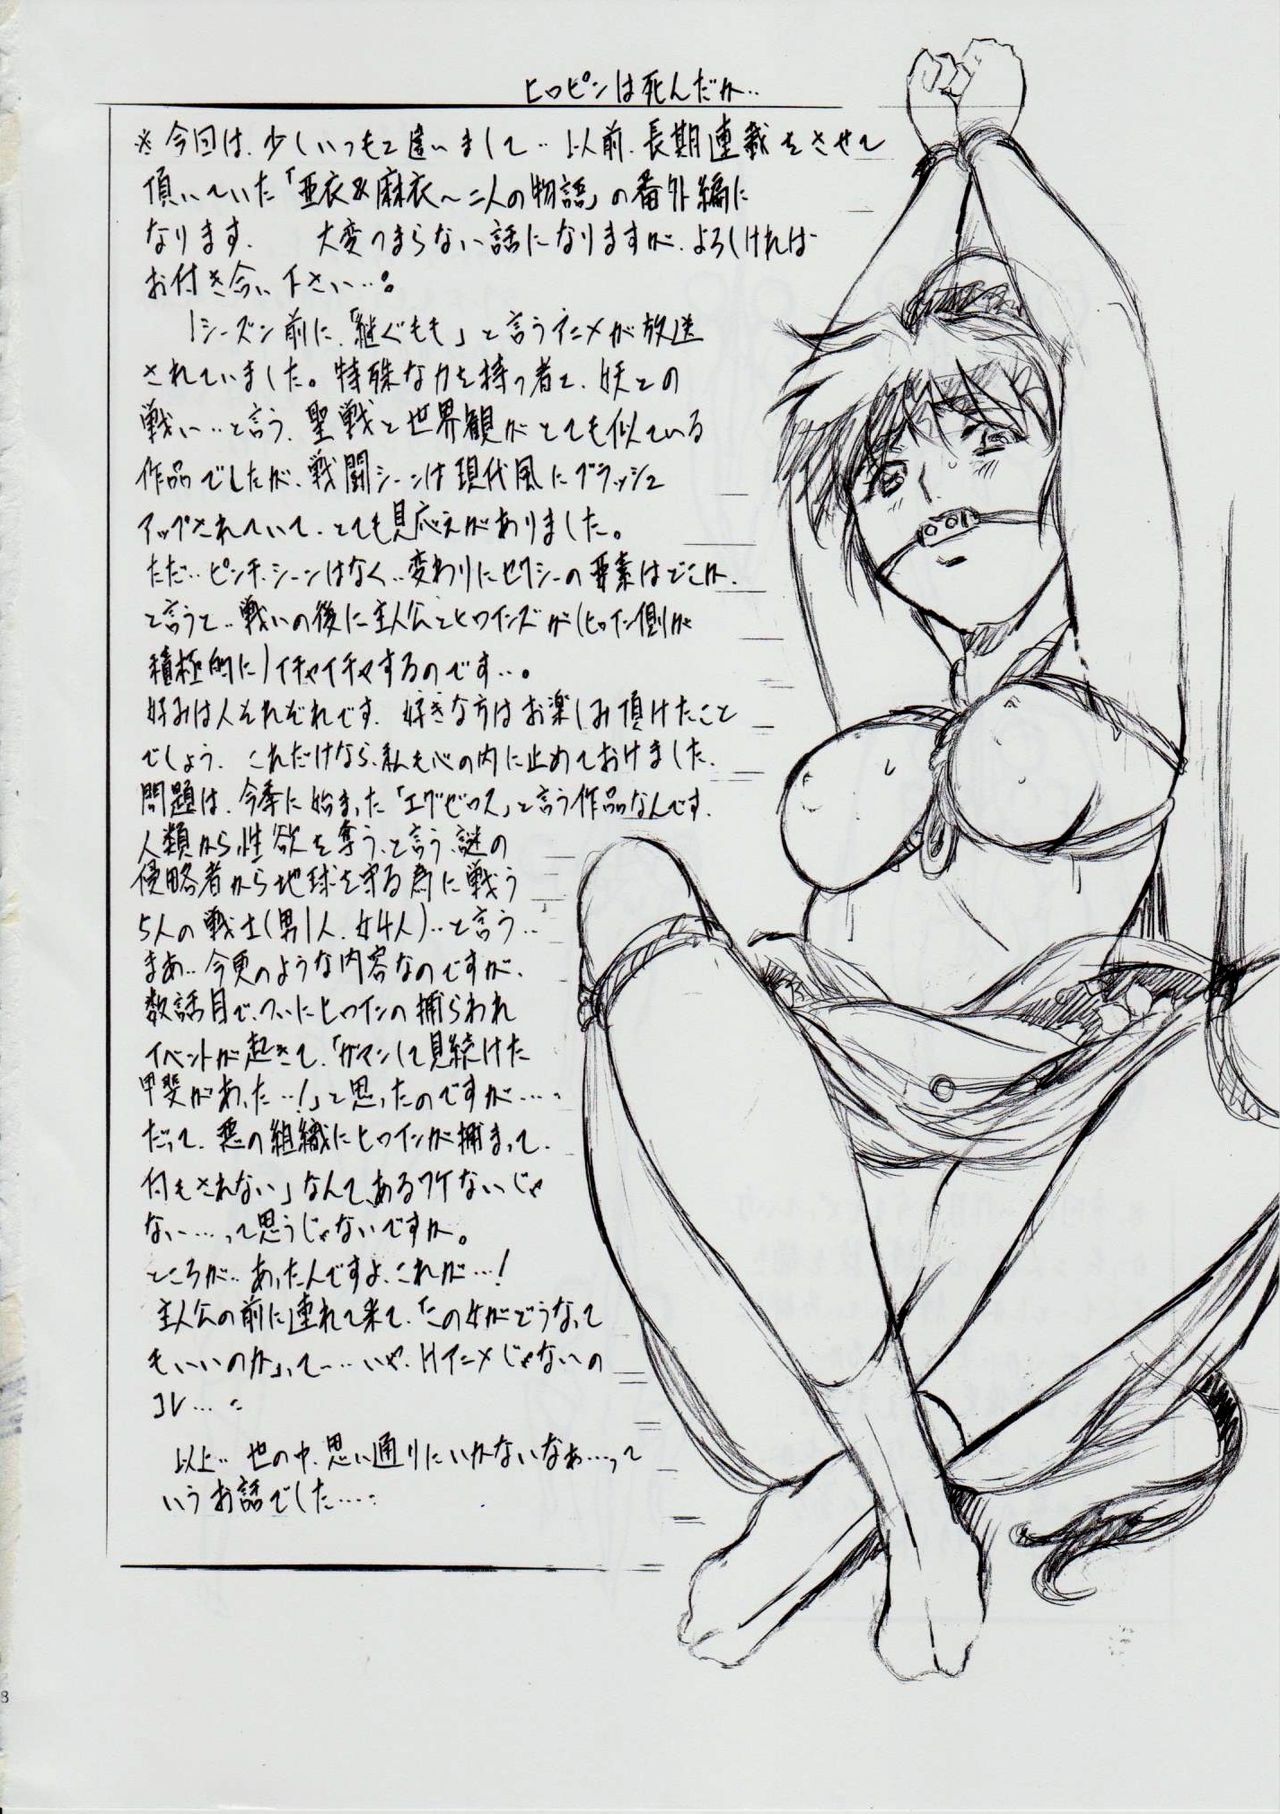 ヒロピンは死んだか‥
※今回は、少しいつもと違いまして‥以前、長期連載をさせて
頂いていた「亜衣&麻衣～二人の物語」の番外編に
なります。 大変つまらない話になりますが、よろしければ
お付き合い下さい‥。
1シーズン前に、「継ぐもも」と言うアニメが放送
されていました。特殊な力を持つ者と、妖との
戦い‥と言う、聖戦と世界観がとても似ている
作品でしたが、戦闘シーンは現代風にブラッシュ
アップされていて、とても見応えがありました。
ただ‥ピンチ・シーンはなく‥変わりにセクシーの要素はどこか、
と言うと‥戦いの後に主人公とヒロインズが(ヒロイン側が
積極的に)イチャイチャするのです…。
好みは人それぞれです。好きな方はお楽しみ頂けたこと
でしょう。これだけなら、私も心の内に止めておけました。
問題は、今季に始まった「エグゼロス」と言う作品なんです。
人類から性欲を奪う、と言う謎の
侵略者から地球を守る為に戦う
5人の戦士(男1人、女4人)‥と言う‥
まあ‥今更のような内容なのですが、
数話目で、ついにヒロインの捕らわれ
イベントが起きて、「ガマンして見続けた
甲斐があった‥!」と思ったのですが‥‥
だって、悪の組織にヒロインが捕まって、
何もされない」なんて、あるワケないじゃ
ない‥‥って思うじゃないですか。
ところが‥あったんですよ、これが…!
主人公の前に連れて来て、「この女がどうなって
もいいのか」って‥‥いや、Hアニメじゃないの
コレ‥‥
以上‥世の中、思い通りにいかないなぁ‥‥って
いうお話でした‥‥
8